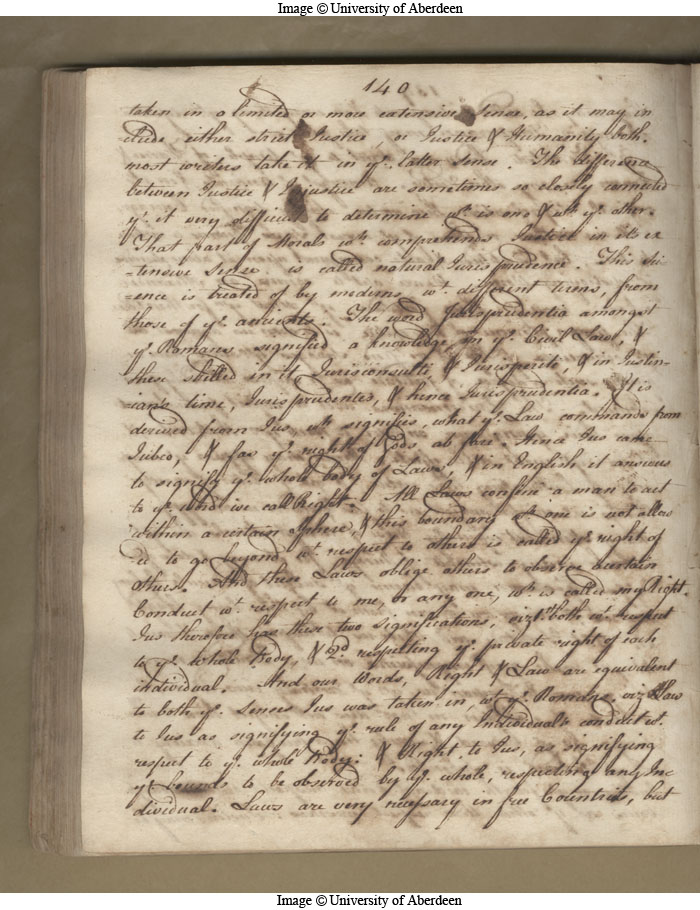 Image © University of Aberdeen
140
taken in a limited or more extensive sense, as it may in
clude either strict Justice, or Justice & Humanity both.
most writers take it in ye. latter sense. The difference
between Justice & Injustice are sometimes so closely connected
yt. it very difficult to determine wt. is one & wt. ye. other.
That part of Morals wh. comprehends Justice in its ex
-tensive sense is called natural Jurisprudence. This Sci-
-ence is treated of by moderns wt. different terms, from
those of ye. ancients. The word Jurisprudentia amongst
ye. Romans signified a knowledge in ye. Civil Law, &
these skilled in it Jurisconsulti, & Jurisperiti, & in Justin-
-ian's time, Jurisprudentes, & hence Jurisprudentia. It is
derived from Jus wh. signifies, what ye. Law commands from
Jubeo, & fas ye. right of Gods ab fare. Hence Jus came
to signify ye. whole body of Laws, & in English it answers
to ye. word we call Right. All Laws confine a man to act
within a certain Sphere, & this boundary wh. one is not allow
ed to go beyond wt. respect to others is called ye. right of
others. And these Laws oblige others to observe a certain
Conduct wt. respect to me, or any one, wh. is called my Right.
Jus therefore has these two significations, viz. both wt. respect
to ye. whole Body, & 2d. respecting ye. private right of each
individual. And our Words, Right & Law are equivalent
to both ye. senses Jus was taken in, wt. ye. Romans viz. Law
to Jus as signifying ye. rule of any Individual's conduct wt.
respect to ye. whole Body: & Right, to Jus, as signifying
ye. bounds to be observed by ye. whole, respecting any In
dividual. Laws are very necessary in free Countries, but
Image © University of Aberdeen